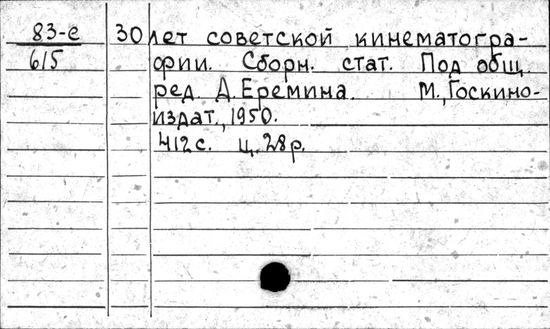 83-е 30 лет советской кинематогра-
615 фии. Сборн. стат. Под общ.
ред. Д. Еремина. М., Госкино-
издат, 1950.
412 с. ц. 28 р.